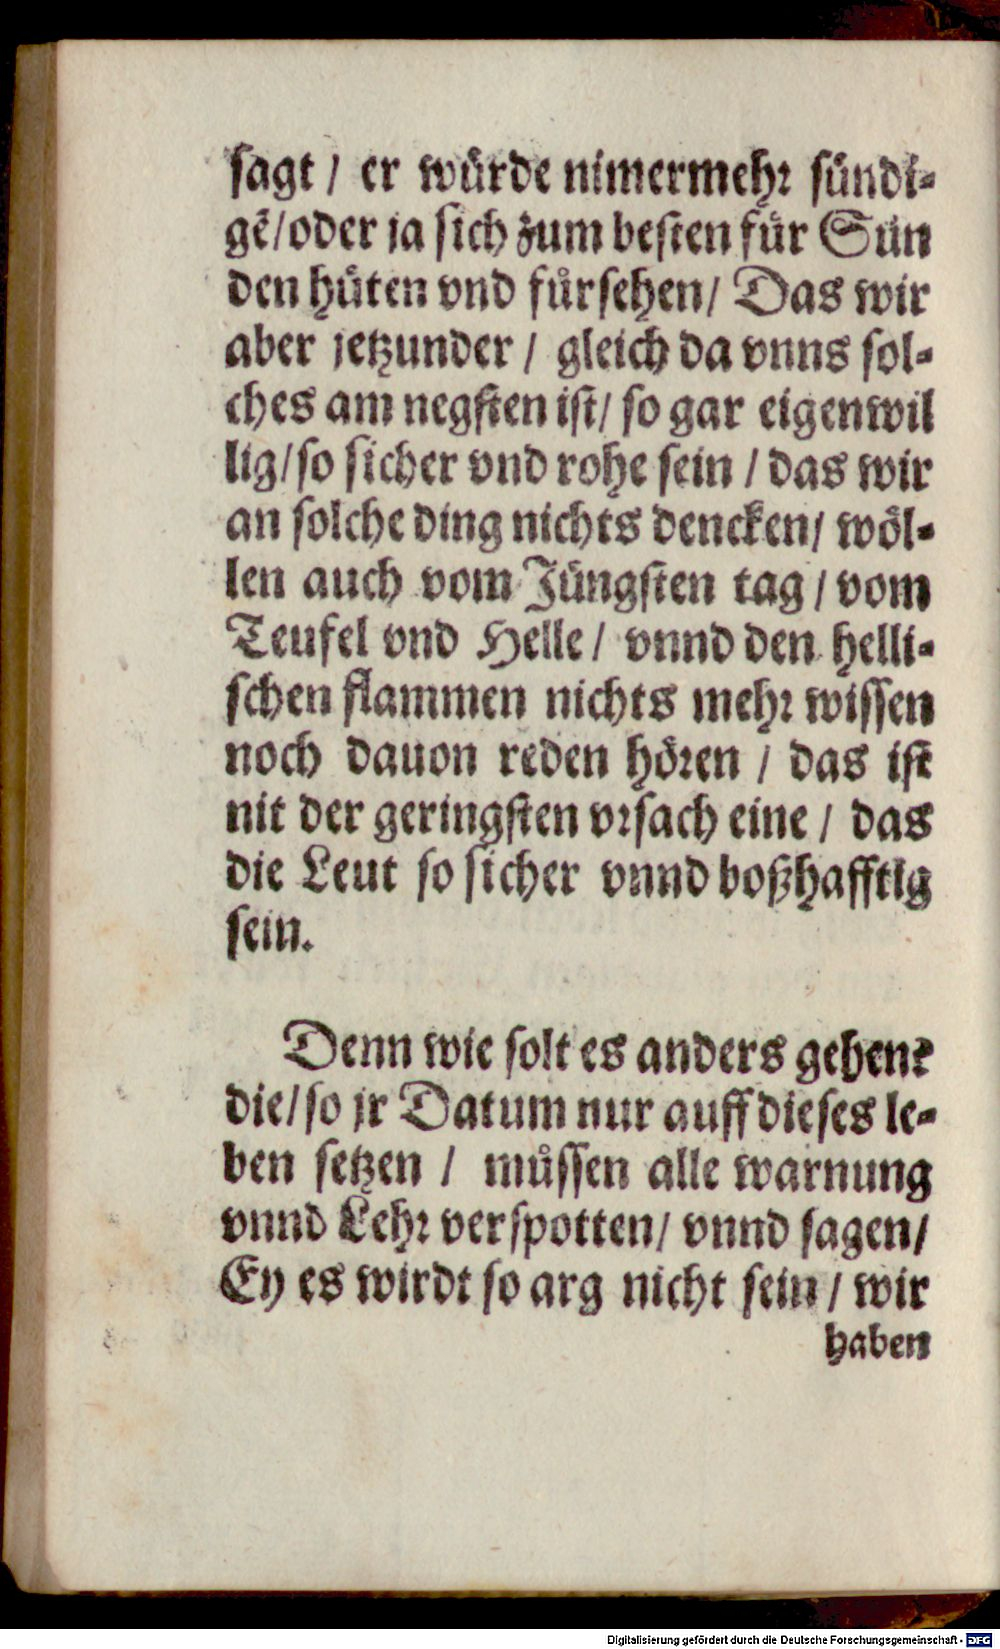 sagt / er würde nimermehr sündi-
gẽ/oder ja sich zum besten für Sün
den hüten vnd fürsehen/ Das wir
aber jetzunder / gleich da vnns sol-
ches am negsten ist/ so gar eigenwil
lig/so sicher vnd rohe sein / das wir
an solche ding nichts dencken/ wöl-
len auch vom Jüngsten tag / vom
Teufel vnd Helle / vnnd den helli-
schen flammen nichts mehr wissen
noch dauon reden hören / das ist
nit der geringsten vrsach eine / das
die Leut so sicher vnnd boßhafftig
sein.
Denn wie solt es anders gehen?
die/so jr Datum nur auff dieses le-
ben setzen / müssen alle warnung
vnnd Lehr verspotten/ vnnd sagen/
Ey es wirdt so arg nicht sein / wir
haben
Digitalisierung gefördert durch die Deutsche Forschungsgemeinschaft - DFG